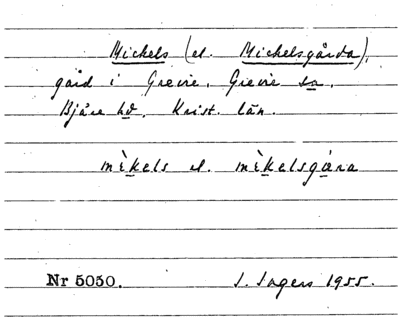 Mickels (el. Mickelsgårda),
gård i Grevie, Grevie sn.
Bjäre hd. Krist. län.
mὲkels el. mὲkelsgåra
Nr 5050. I. Ingers 1955.